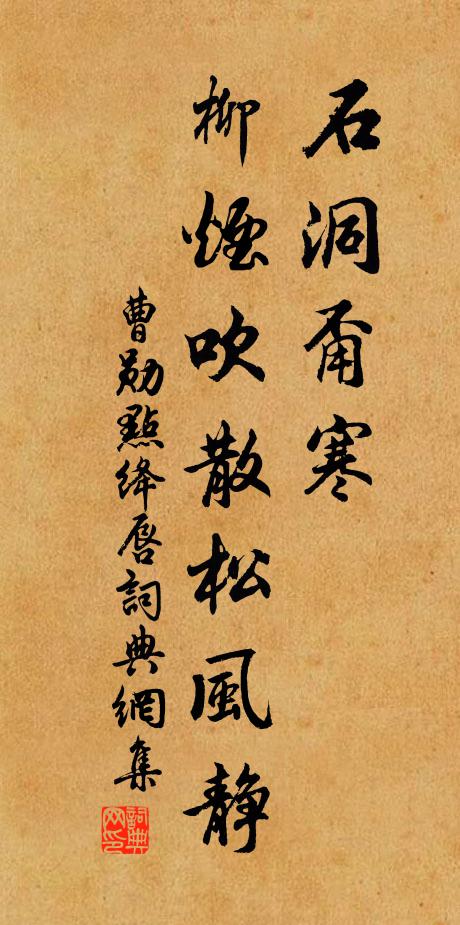 石洞甭寒
柳煙吹散松風靜
曹勛點絳唇詞典網集
詞典网印